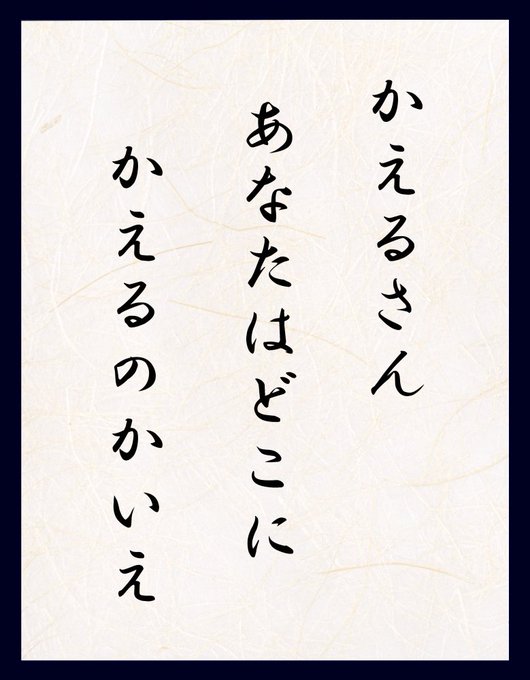 かえるさん
あなたはどこに
かえるのかいえ